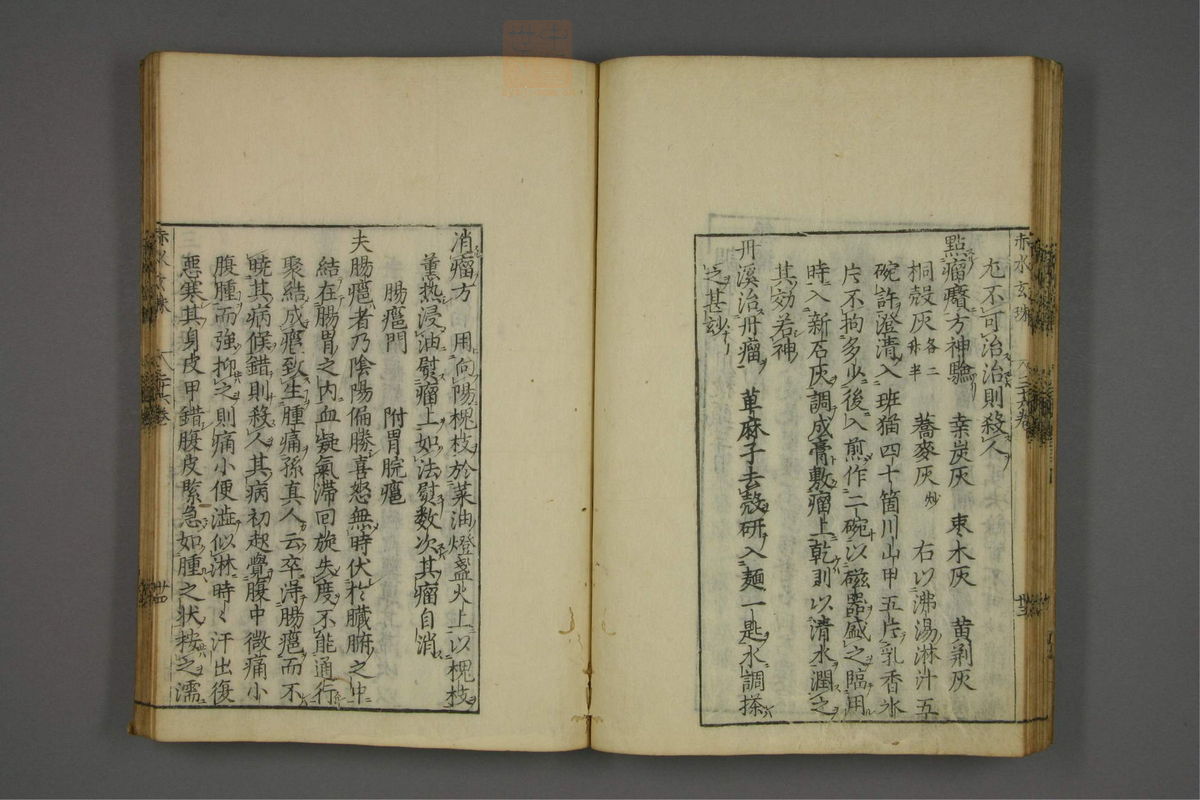 赤水玄珠 二十六卷
尤不可治治則殺人
點瘤贅方神驗 桒炭灰 枣木灰 黄荆灰
桐殼灰各二升半 蕎麥灰炒 右以沸湯淋汁五
碗許澄清入班猫四十箇川山甲五片乳香氷
片不拘多少後入煎作二碗以磁器盛之臨用
時入新石灰調成膏敷瘤上乾則以清水潤之
其効若神
丹溪治丹瘤 萆麻子去殼研入麺一匙水調搽
之甚玅
消瘤方 用向陽槐枝於菜油燈盞火上以槐枝
薰热浸油熨瘤上如法熨数次其瘤自消
腸癰門 附胃脘癰
夫腸癰者乃陰陽偏勝喜怒無時伏於臓腑之中
結在腸胃之内血凝氣滞回旋失度不能通行
聚結成癰致生腫痛孫真人云卒淂腸癰而不
曉其病候錯則殺人其病初起覺腹中微痛小
腹腫而強抑之則痛小便澁似淋時〻汗出復
悪寒其身皮甲錯腹皮緊急如腫之状按之濡
赤水玄珠 二十六卷